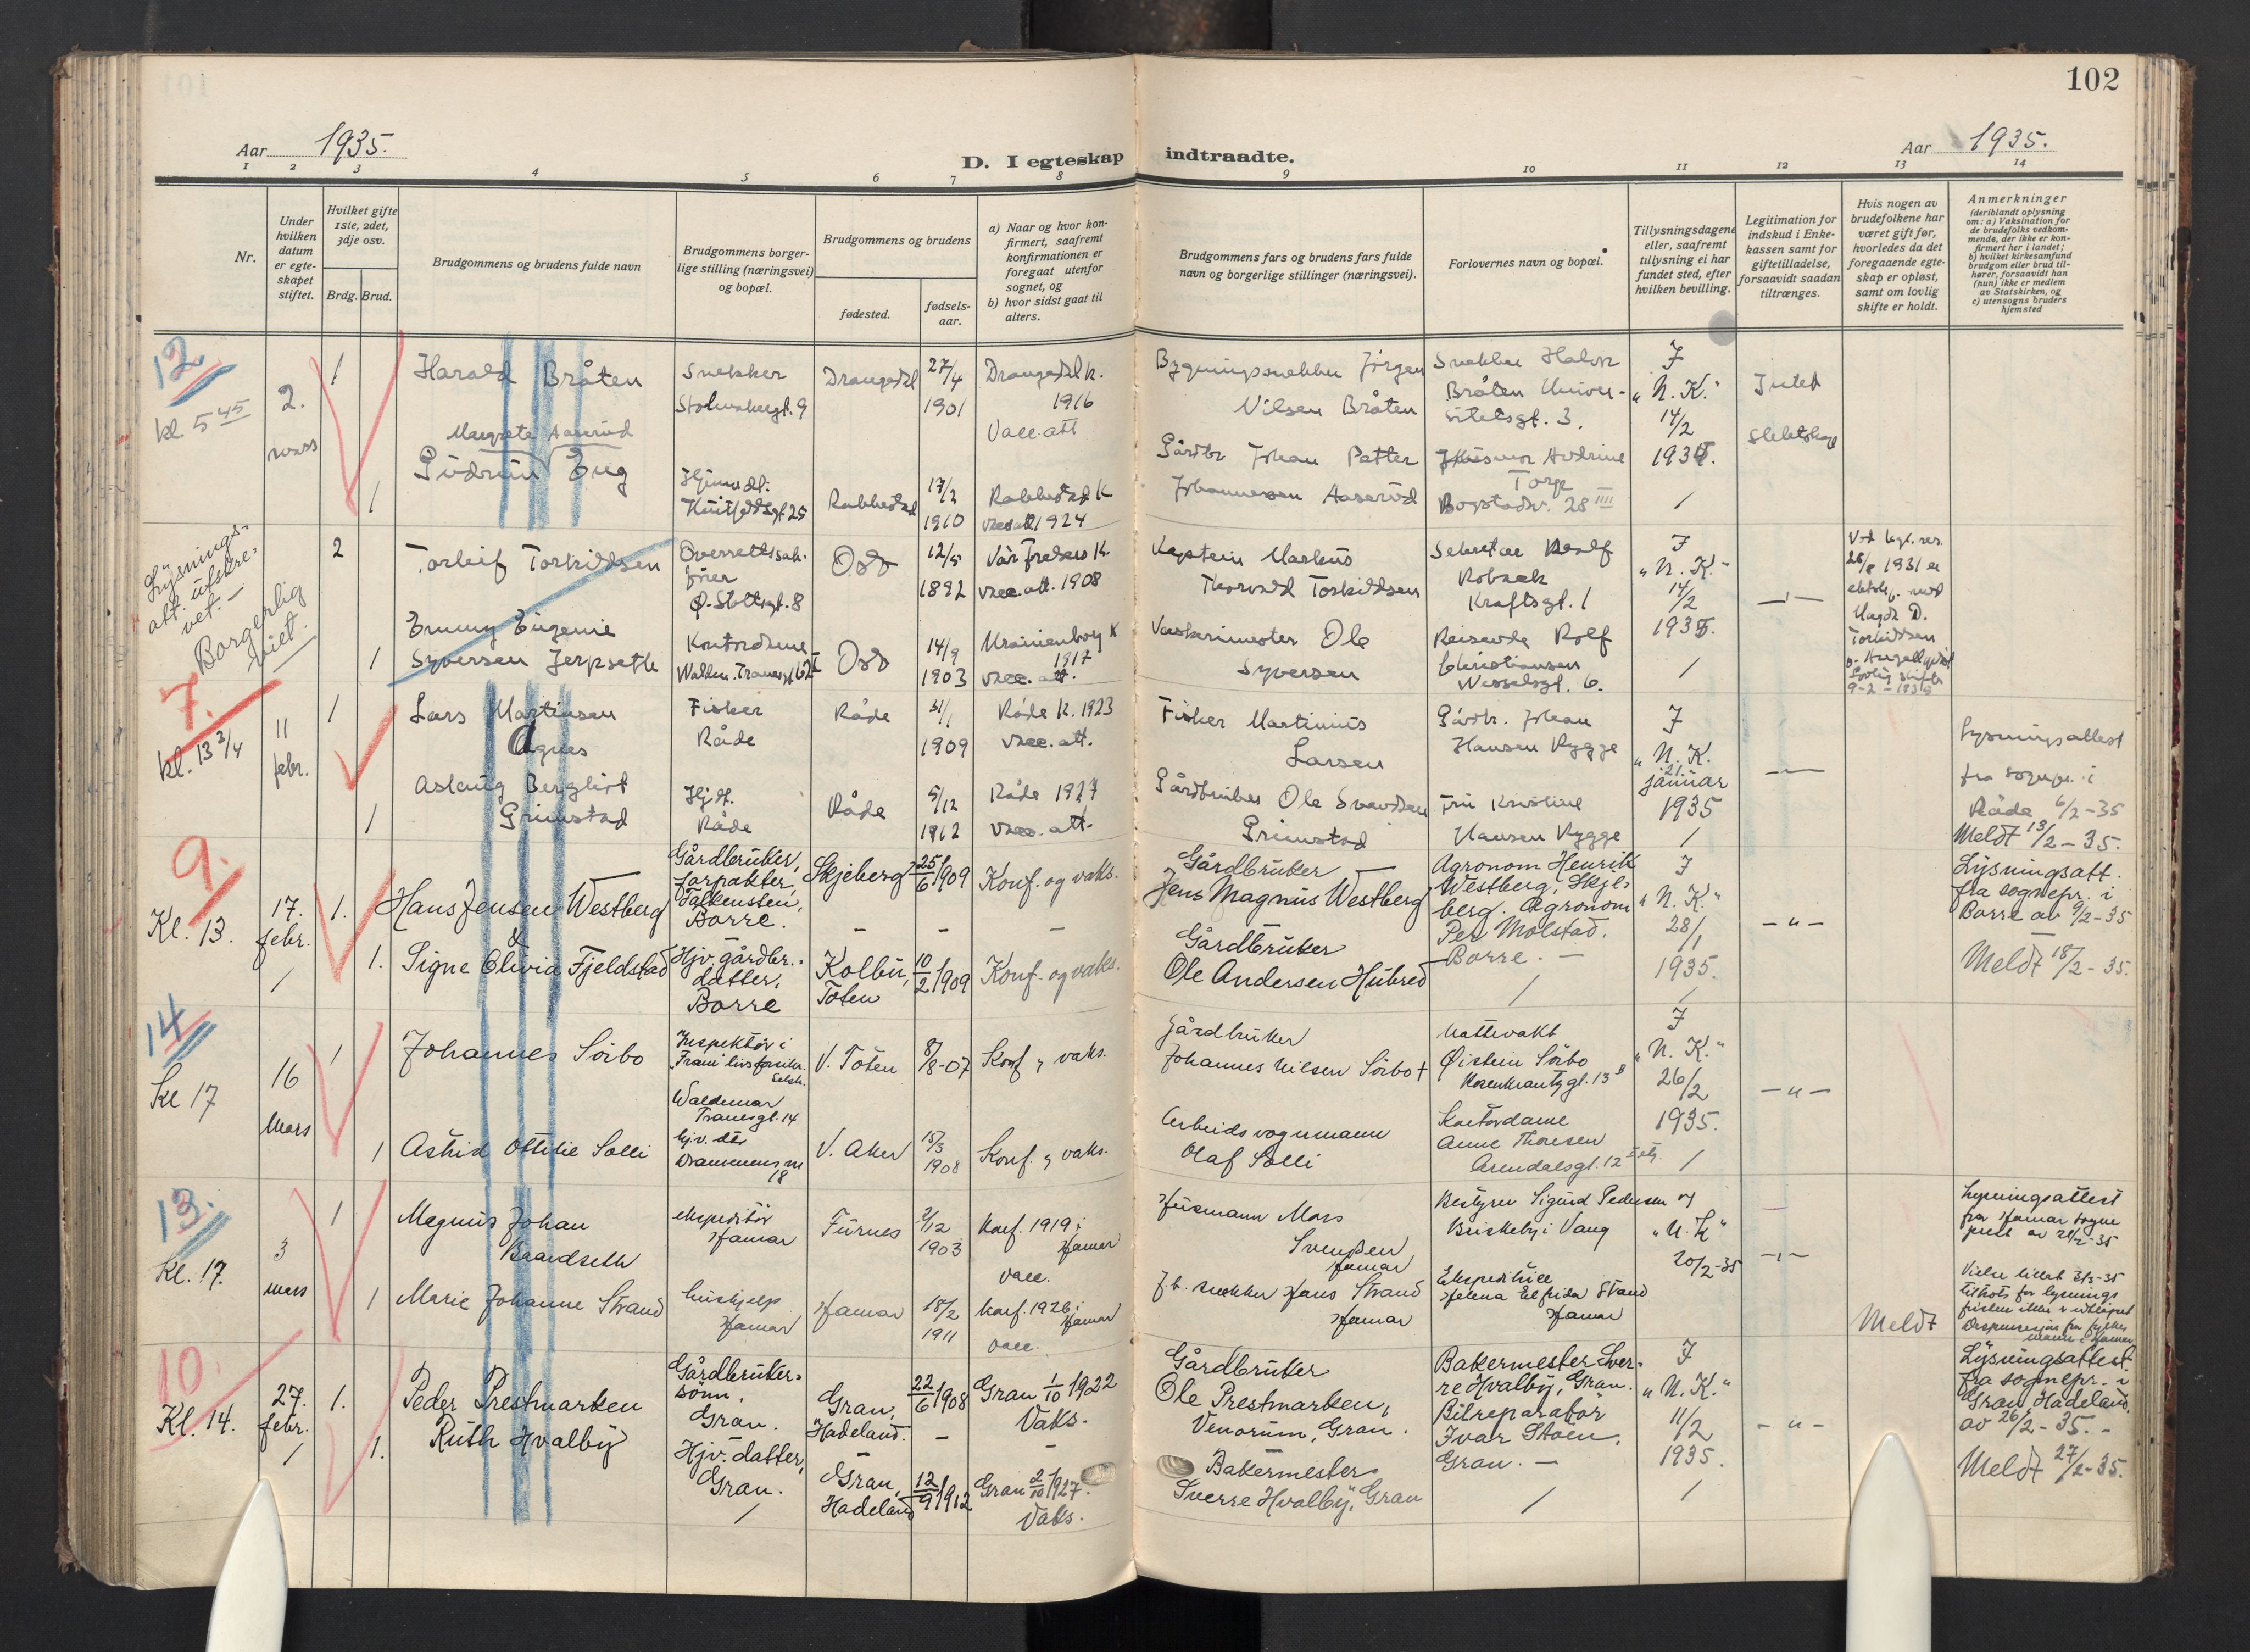 102
Aar 1935.
D. I egteskap indtraadte.
Aar 1935.
1 2 3 4 5 6 7 8 9 10 11 12 13 14
Nr.
Under
hvilken
datum
er egte-
skapet
stiftet.
Hvilket gifte
1ste, 2det,
3dje osv.
Brdg. Brud.
Brudgommens og brudens fulde navn
Brudgommens borger-
lige stilling (næringsvei)
og bopæl.
Brudgommens og brudens
fødested.
fødsels-
aar.
a) Naar og hvor kon-
firmert, saafremt
konfirmationen er
foregaat utenfor
sognet, og
b) hvor sidst gaat til
alters.
Brudgommens fars og brudens fars fulde
navn og borgerlige stillinger (næringsvei).
Forlovernes navn og bopæl.
Tillysningsdagene
eller, saafremt
tillysning ei har
fundet sted, efter
hvilken bevilling.
Legitimation for
indskud i Enke-
kassen samt for
giftetilladelse,
forsaavidt saadan
tiltrænges.
Hvis nogen av
brudefolkene har
været gift før,
hvorledes da det
foregaaende egte-
skap er opløst,
samt om lovlig
skifte er holdt.
Anmerkninger
(deriblandt oplysning
om: a) Vaksination for
de brudefolks vedkom-
mende, der ikke er kon-
firmert her i landet;
b) hvilket kirkesamfund
brudgom eller brud til-
hører, forsaavidt han
(hun) ikke er medlem
av Statskirken, og
c) utensogns bruders
hjemsted
12
kl. 5 45
2.
mars
1
Harald Bråten
Snekker
Stolmakergt. 9
Drangedal
27/4
1901
Drangedal k.
1916
Vacc. att
Bygningssnekker Jørgen
Nilsen Bråten
Snekker Halvor
Bråten Univer-
sitetsgt. 3.
I
"U. K."
14/2
1935.
Intet
slektskap
1
Margrete Aaserud
Gudrun Eug
Hjemmedt.
25
Rakkestad
17/3
1910
Rakkestad K
vacc att 1924
Gårdbr Johan Petter
Johannesen Aaserud
Husmor
Torp
Bogstadv. 28 IIII
/
Lysnings-
att. utskre-
vet. —
Borgerlig
viet.
2
Torleif Torkildsen
Overrettssak-
fører
Ø. Slottsgt. 8
Oslo
12/5
1892
Vår Frelsers K.
vacc. att. 1908
Kaptein Markus
Thorvald Torkildsen
Sekretær Rolf
Robsak
Kraftsgt. 1
I
"U. K."
14/2
1935.
—"—
Ved kgl. res.
26/8 1931 er
ekteskap. med
Magda D.
Torkildsen
Lovlig skifte
9-2-1935
1
Emmy Eugenie
Syversen Jerpseth
Kontordame
Waldm. Tranesgt 62
Oslo
14/9
1903
Uranienborg K
1917
vacc. att.
Vaskerimester Ole
Syversen
Reisende Rolf
Christiansen
Wesselsgt. 6.
/
7.
kl. 13 3/4
11
febr.
1
Lars Martinsen
Fisker
Råde
Råde
31/1
1909
Råde K. 1923
vacc. att.
Fisker Martinius
Larsen
Gårdbr. Johan
Hansen Rygge
I
"U. K.
21.
januar
1935
—"—
Lysningsattest
fra sognepr. i
Råde 6/2-35
Meldt 13/2-35.
1
Agnes
Aslaug Bergliot
Grimstad
Hjdt.
Råde
Råde
5/12
1912
Råde 1927
vacc. att.
Gårdbruker Ole Svendsen
Grimstad
Fru Kristine
Hansen Rygge
/
9.
Kl. 13.
17.
febr.
/
1.
Hans Jensen Westberg
&
Gårdbruker,
forpakter,
Falkensten,
Borre.
Skjeberg
25/6 1909
Konf. og vaks.
Gårdbruker
Jens Magnus Westberg
Agronom Henrik
Westberg, Skje-
berg. Agronom
Per Molstad.
Borre. —
I
"U. K."
28/1
1935.
—"—
Lysningsatt.
fra sognepr. i
Borre av 9/2-35
Meldt 18/2-35.
1.
Signe Olivia Fjeldstad
Hjv. gårdbr.-
datter,
Borre
Kolbu,
Toten
10/2 1909
Konf. og vaks.
Gårdbruker
Ole Andersen Hubred
/
14
Kl 17
16
Mars
1
Johannes Sörbo
Inspektör i
"Fram" livsforsikr.
Selsk.
Waldemar
Tranesgt. 14
V. Toten
8/8-07
Konf. & vaks.
Gårdbruker
Johannes Nilsen Sörbo +
Nattevakt
Øistein Sörbo
Rosenkrantzgt. 13 B
I
"U. K."
26/2
1935.
—"—
1
Astrid Ottilie Solli
hjv. dtr
Drammensvn
18
V. Aker
15/3
1908
Konf. & vaks.
Arbeids vognmann
Olaf Solli
Kontordame
Anne Thoresen
Arendalsgt. 12 I etg.
/
13.
Kl. 17.
3
mars
1
Magnus Johan
Baardseth
ekspeditör
Hamar
Furnes
2/12
1903
Konf. 1919 i
Hamar
vacc.
Husmann Mons
Svendsen
Hamar
Bestyrer Sigurd Pedersen
Briskeby i Vang
I
"U. K"
20/2-35
—"—
Lysningsattest
fra Hamar sogne
prest av 28/2-35
Vielse tillatt 2/3-35
tiltross for lysnings
fristen ikke er utløpet
Dispensasjon fra fylkes
mann i Hamar
1
Marie Johanne Strand
hushjelp
Hamar
Hamar
18/2
1911
konf. 1926 i
Hamar
vacc.
f.h. snekker Hans Strand
Hamar
Ekspeditrice
Helena Elfrida Strand
Hamar
Meldt
10.
Kl. 14.
27.
febr.
/
1.
Peder Prestmarken
Gårdbruker-
sönn,
Gran.
Gran,
Hadeland.
22/6 1908
Gran 1/10 1922
Vaks.
Gårdbruker
Ole Prestmarken,
Venorum, Gran.
Bakermester Sver-
re Hvalby, Gran.
Bilreparatör
Ivar Stoen,
Gran. —
I
"U. K."
11/2
1935.
—"—
Lysningsattest
fra sognepr. i
Gran, Hadeland.
av 26/2-35. -
Meldt 27/2-35.
1.
Ruth Hvalby
Hjv. datter,
Gran.
/
Gran,
Hadeland
12/9 1912
Gran 2/10 1927.
Vaks.
Bakermester
Sverre Hvalby, Gran
/
/